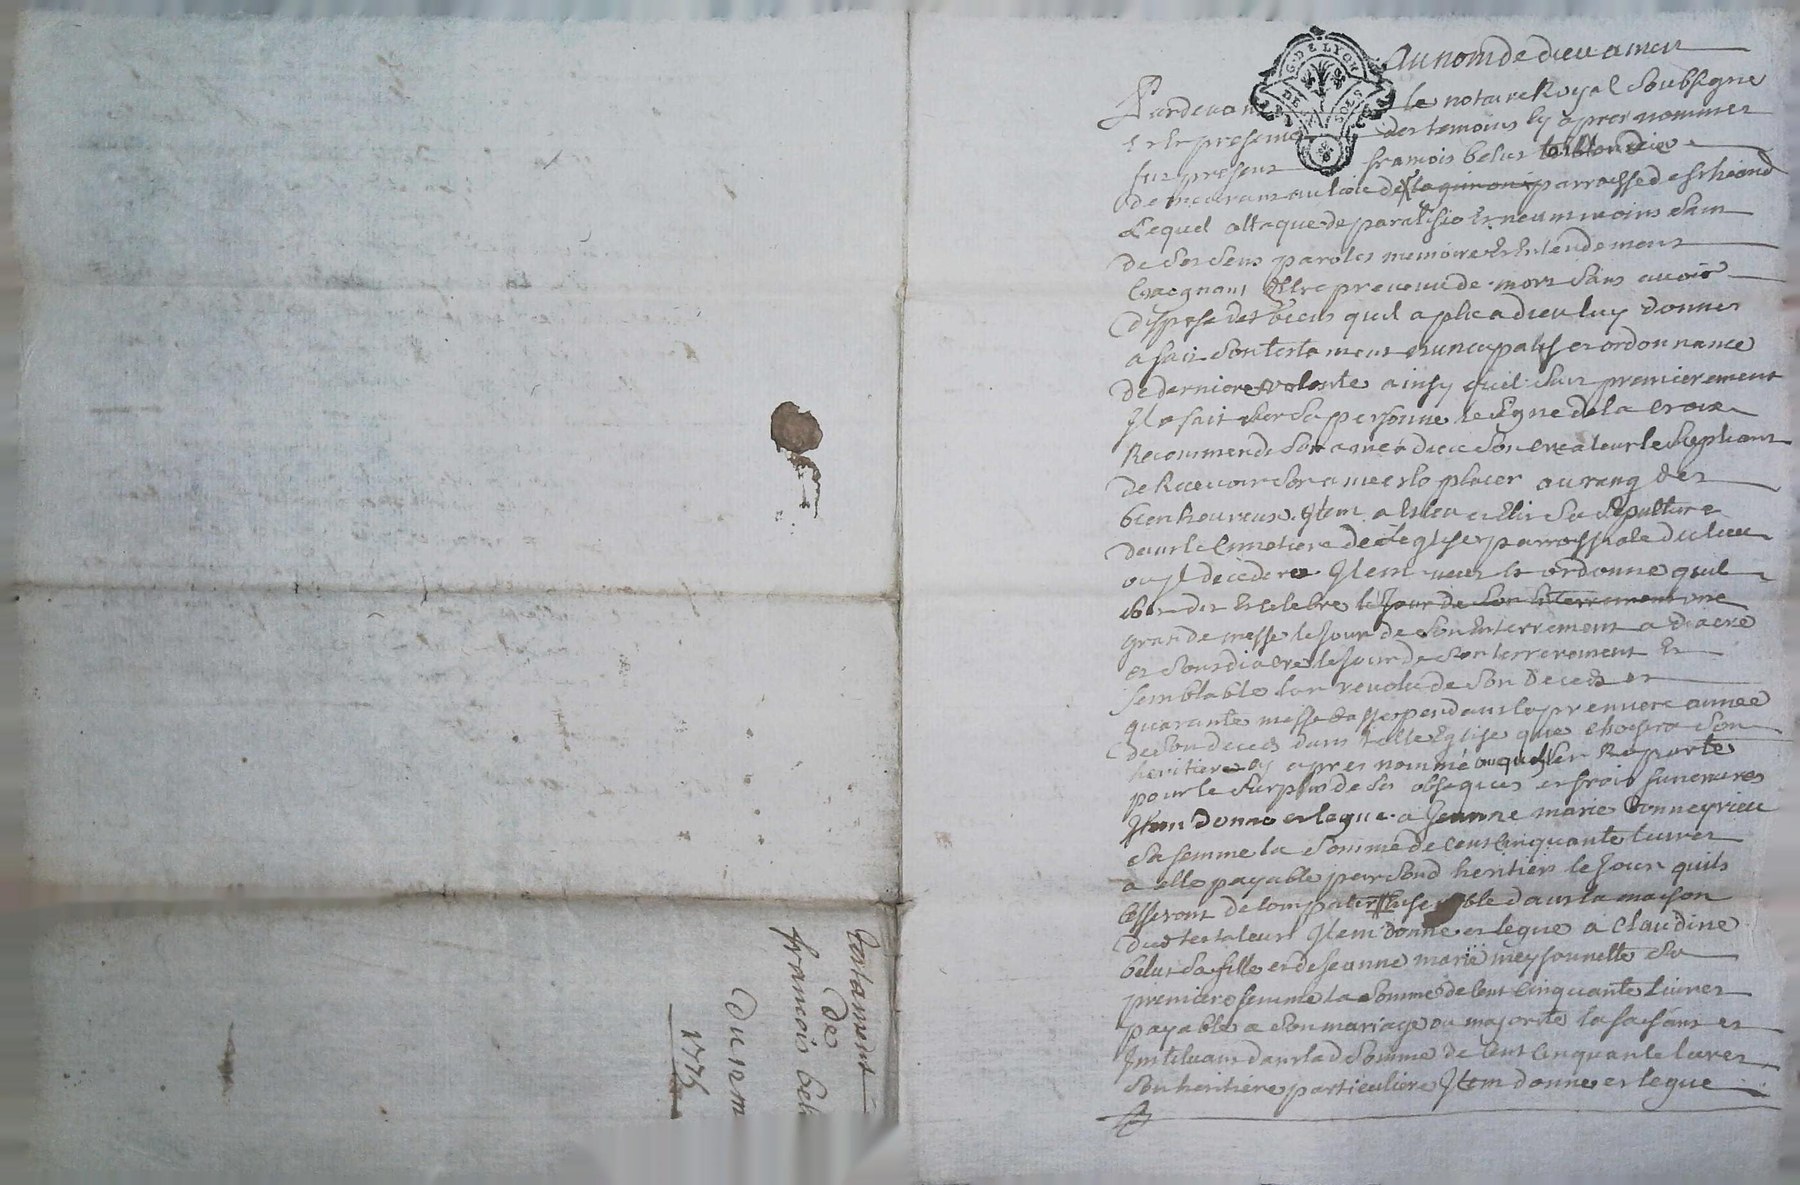 Au nom de dieu amen
Pardevant le notaire Royal soubsigne
et en presence des temoins cy apres nommes
fut present francois belus
demeurant au lieu de parroisse de st heand
Lequel attaque de paralisie et neantmoins sain
de ses sens paroles memoire et entendement
Craegnant d'estre prevenu de mort sans avoir
dispose des biens quil a plu a dieu luy donner
a fait son testament nuncupatif et ordonnance
de derniere volonte ainsy quil suit premierement
Il a fait sur sa personne le signe de la croix
Recommende son ame a dieu son createur le supliant
de Recevoir son ame et la placer au rang des
bienheureux. Item a esleu et elir sa sepulture
dans le Cimetiere de L'eglise parrossiale du lieu
ou Il decedera. Item veut et ordonne quil
soit dit et celebre le Jour de son Enterrement une
grande messe le Jour de son Enterrement a diacre
et sousdiacre le Jour de son terrerement Et
semblable lan revolu de son deceds et
quarante messe basse pendant la premiere annee
de son deceds dans telle Eglise que choisira son
heritiere cy apres nommé auquel Il se Raporte
pour le surplus de ses obseques et frais funeraires
Item donne et legue a Jeanne marie bonneyrieu
sa femme la somme de cent cinquante livres
a elle payable par sond heritiers le Jour quils
Cesseront de compatir Ensemble dans la maison
dud testateur Item donne et legue a Claudine
belus sa fille et de Jeanne marie meysonnette sa
premiere femme la somme de cent cinquante livres
payable a son mariage ou majorite la faisant et
Instituant dans lad somme de cent cinquante livres
son heritiere particuliere Item donne et legue
Testament
de
francois bel
du
1775
G. DE LYON
DE SOLS